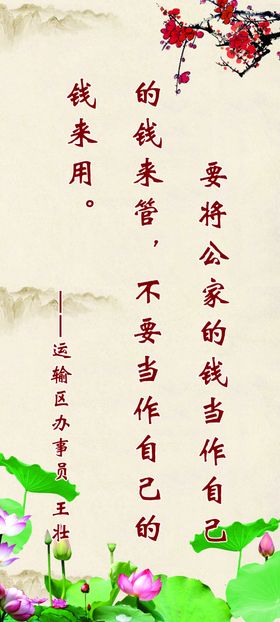 要将公家的钱当作自己
的钱来管，不要当作自己的
钱来用。
——运输区办事员 王壮